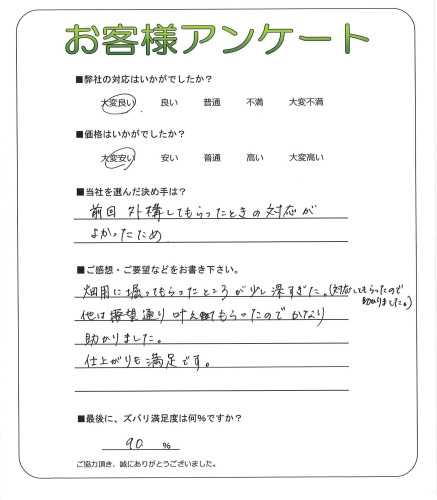 お客様アンケート
■弊社の対応はいかがでしたか？
大変良い 良い 普通 不満 大変不満
■価格はいかがでしたか？
大変安い 安い 普通 高い 大変高い
■当社を選んだ決め手は？
前回外構してもらったときの対応が
よかったため
■ご感想・ご要望などをお書き下さい。
畑用に掘ってもらったところが少し深すぎた。(対応してもらったので
助かりました。)
他は要望通り叶えてもらったのでかなり
助かりました。
仕上がりも満足です。
■最後に、ズバリ満足度は何％ですか？
90 ％
ご協力頂き、誠にありがとうございました。